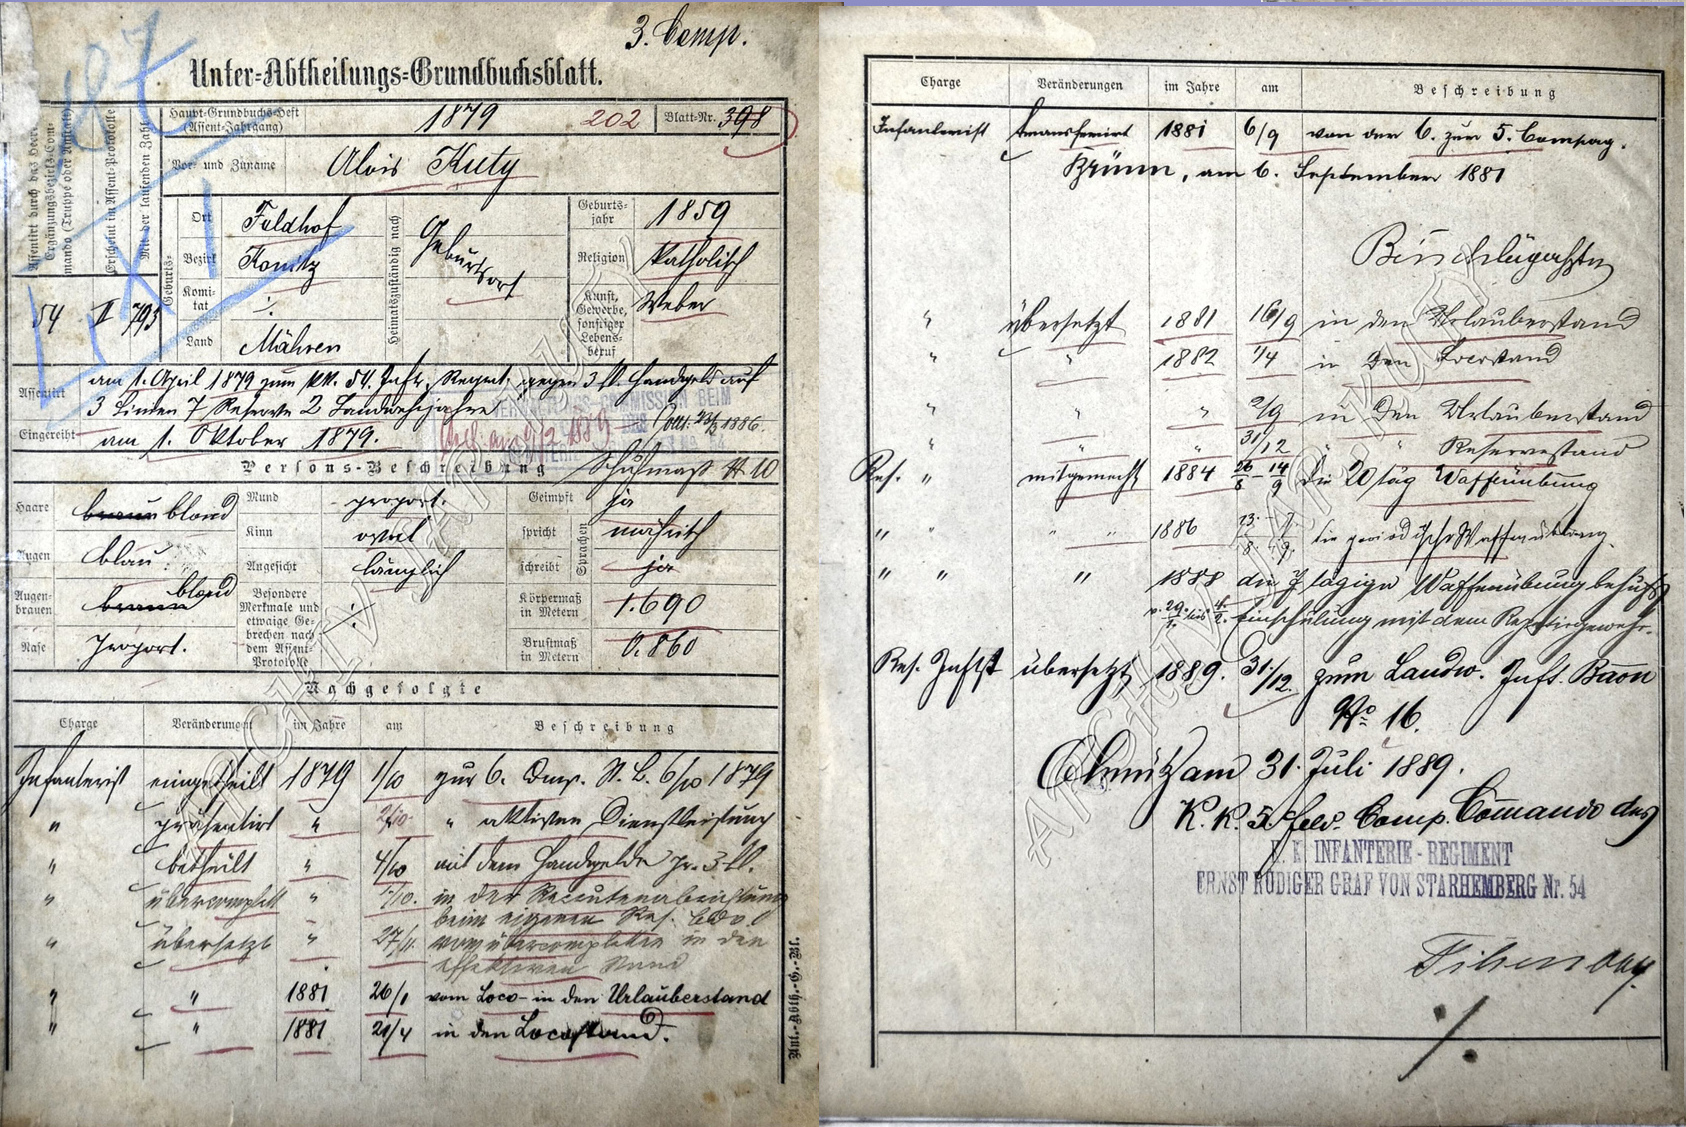 3. Comp.
Unter-Abtheilungs-Grundbuchsblatt.
Assentirt durch das Heer-Ergänzungsbezirks-Commando (Truppe oder Anstalt)
Erscheint im Assent-Protokolle
Mit der laufenden Zahl
54 II 793
Haupt-Grundbuchs-Heft (Assent-Jahrgang) 1879 202 Blatt-Nr. 398
Vor- und Zuname Alois Kuty
Geburts-
Ort Feldhof
Bezirk Konitz
Komitat ./.
Land Mähren
Heimatszuständig nach Geburtsort
Geburtsjahr 1859
Religion katholisch
Kunst, Gewerbe, sonstiger Lebensberuf Weber
Assentirt am 1. April 1879 zum kk. 54. Inft. Regmt. gegen 3 fl. Handgeld auf
3 Linien 7 Reserve 2 Landwehrjahre
Eingereiht am 1. Oktober 1879.
Persons-Beschreibung Schuhmaß № 10
Haare braun blond
Augen blau
Augenbrauen braun blond
Nase proport.
Mund proport.
Kinn oval
Angesicht länglich
Besondere Merkmale und etwaige Gebrechen nach dem Assent-Protokolle ./.
Geimpft ja
Sprachen
spricht mährisch
schreibt ja
Körpermaß in Metern 1.690
Brustmaß in Metern 0.860
Nachgefolgte
Charge Veränderungen im Jahre am Beschreibung
Infanterist eingetheilt 1879 1/10 zur 6. Comp. 6/10 1879
" präsentirt " 2/10 " aktiven Dienstleistung
" betheilt " 4/10 mit dem Handgelde pr. 3 fl.
" übercomplett " in der Recrutenabrichtung
beim eigenen Res.
" übersetzt " 27/11 vom übercompletten in den
effektiven Stand
" " 1881 26/1 vom Loco- in den Urlauberstand
" " 1881 29/4 in den Locostand.
Unt.-Abth.-G.-Bl.
Charge Veränderungen im Jahre am Beschreibung
Infanterist transferirt 1881 6/9 von der 6. zur 5. Compag.
Brünn, am 6. September 1881
" übersetzt 1881 16/9 in den Urlauberstand
" " 1882 1/4 in den Locostand
" " " 2/9 in den Urlauberstand
" " 31/12 " " Reservestand
Res. " mitgemacht 1884 26/8 - 14/9 die 20 täg Waffenübung
" " " " 1886 die periodische Waffenübung
" " " 1888 die 7 tägige Waffenübung behufs
Einschulung mit dem Repetiergewehr.
Res. Inftst übersetzt 1889. 31/12. zum Landw. Inft. Baon
No 16.
Olmütz am 31. Juli 1889.
K. K. 5. Feld. Comp. Comando des
K. K. INFANTERIE-REGIMENT
ERNST RÜDIGER GRAF VON STARHEMBERG Nr. 54
./.